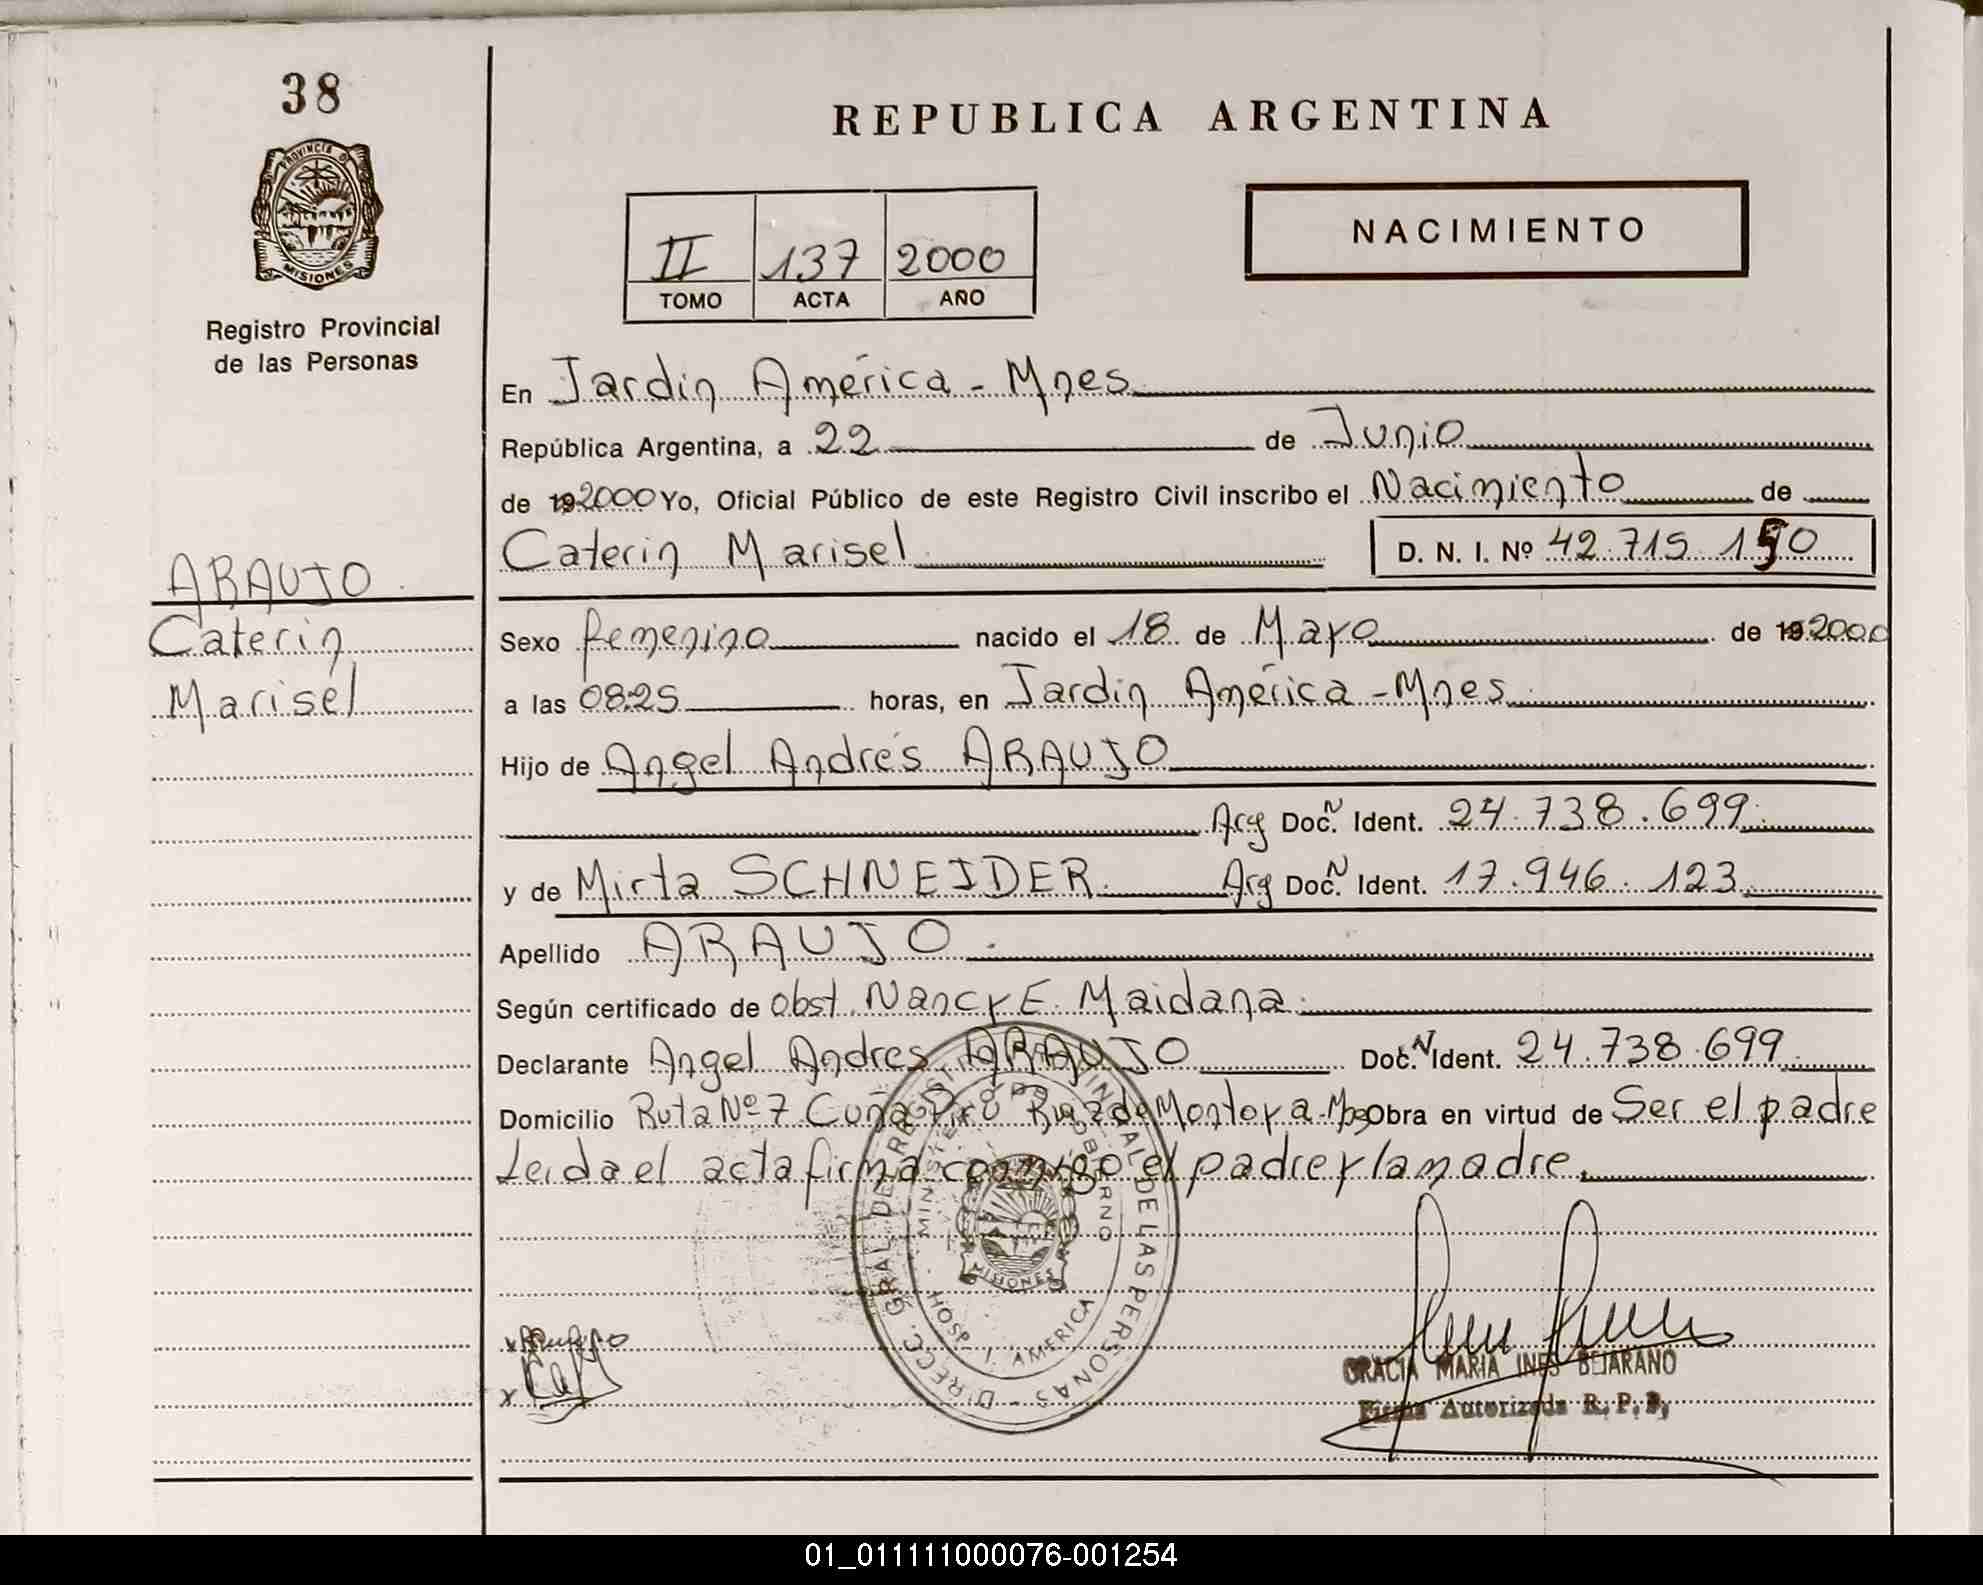 38
PROVINCIA DE
MISIONES
Registro Provincial
de las Personas
ARAUJO.
Caterin
Marisel
REPUBLICA ARGENTINA
II 137 2000
TOMO ACTA AÑO
NACIMIENTO
En Jardin América - Mnes
República Argentina, a 22 de Junio
de 192000 Yo, Oficial Público de este Registro Civil inscribo el Nacimiento de
Caterin Marisel D. N. I. Nº 42.715.150
Sexo femenino nacido el 18 de Mayo de 192000
a las 0825 horas, en Jardin América - Mnes.
Hijo de Angel Andrés ARAUJO
Arg Doc. N Ident. 24.738.699.
y de Mirta SCHNEIDER. Arg Doc. N Ident. 17.946.123
Apellido ARAUJO.
Según certificado de obst. Nancy E. Maidana.
Declarante Angel Andres ARAUJO Doc. N Ident. 24.738.699
Domicilio Ruta Nº 7 Cuña Pirú Ruiz de Montoya - Mnes Obra en virtud de Ser el padre
Leida el acta firma conmigo el padre y la madre.
DIRECC. GRAL DE REGISTRO PROVINCIAL DE LAS PERSONAS
MINISTERIO DE GOBIERNO
MISIONES
HOSP. J. AMERICA
x
x
GRACIA MARIA INES BEJARANO
Firma Autorizada R. P. P.
01_011111000076-001254